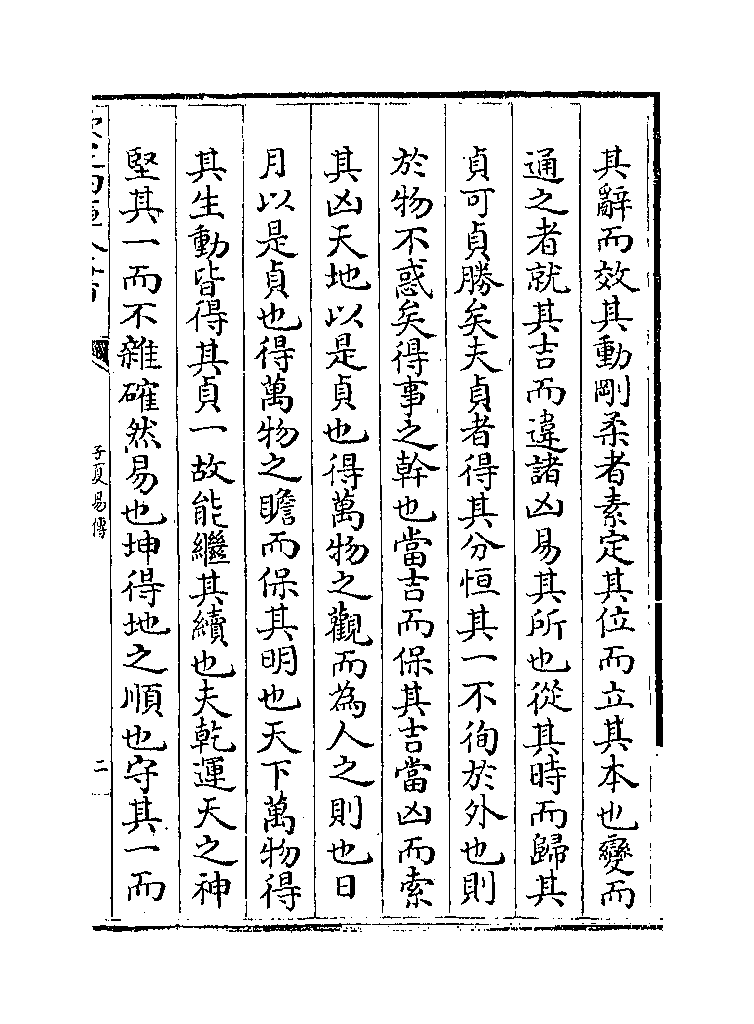 其辭而效其動剛柔者素定其位而立其本也變而
通之者就其吉而違諸凶易其所也從其時而歸其
貞可貞勝矣夫貞者得其分恒其一不徇於外也則
於物不惑矣得事之幹也當吉而保其吉當凶而索
其凶天地以是貞也得萬物之觀而為人之則也日
月以是貞也得萬物之瞻而保其明也天下萬物得
其生動皆得其貞一故能繼其續也夫乾運天之神
堅其一而不雜確然易也坤得地之順也守其一而
子夏易傳
二